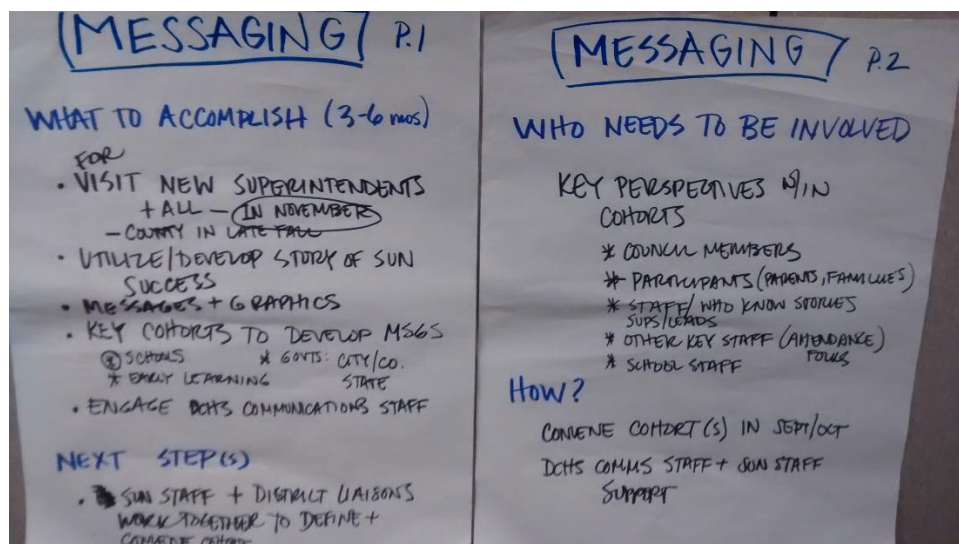 MESSAGING P.1
WHAT TO ACCOMPLISH (3-6 mos)
FOR
• VISIT NEW SUPERINTENDENTS
+ ALL — IN NOVEMBER
— COUNTY IN LATE FALL
• UTILIZE/DEVELOP STORY OF SUN
SUCCESS
• MESSAGES + GRAPHICS
• KEY COHORTS TO DEVELOP MSGS
* SCHOOLS * GOVTS: CITY/CO.
* EARLY LEARNING STATE
• ENGAGE DCHS COMMUNICATIONS STAFF
NEXT STEP(S)
• SUN STAFF + DISTRICT LIAISONS
WORK TOGETHER TO DEFINE +
CONVENE COHORTS
MESSAGING P.2
WHO NEEDS TO BE INVOLVED
KEY PERSPECTIVES W/IN
COHORTS
* COUNCIL MEMBERS
* PARTICIPANTS (PARENTS, FAMILIES)
* STAFF/ WHO KNOW STORIES
SUPS/LEADS
* OTHER KEY STAFF (ATTENDANCE)
FOLKS
* SCHOOL STAFF
HOW?
CONVENE COHORT(S) IN SEPT/OCT
DCHS COMMS STAFF + SUN STAFF
SUPPORT